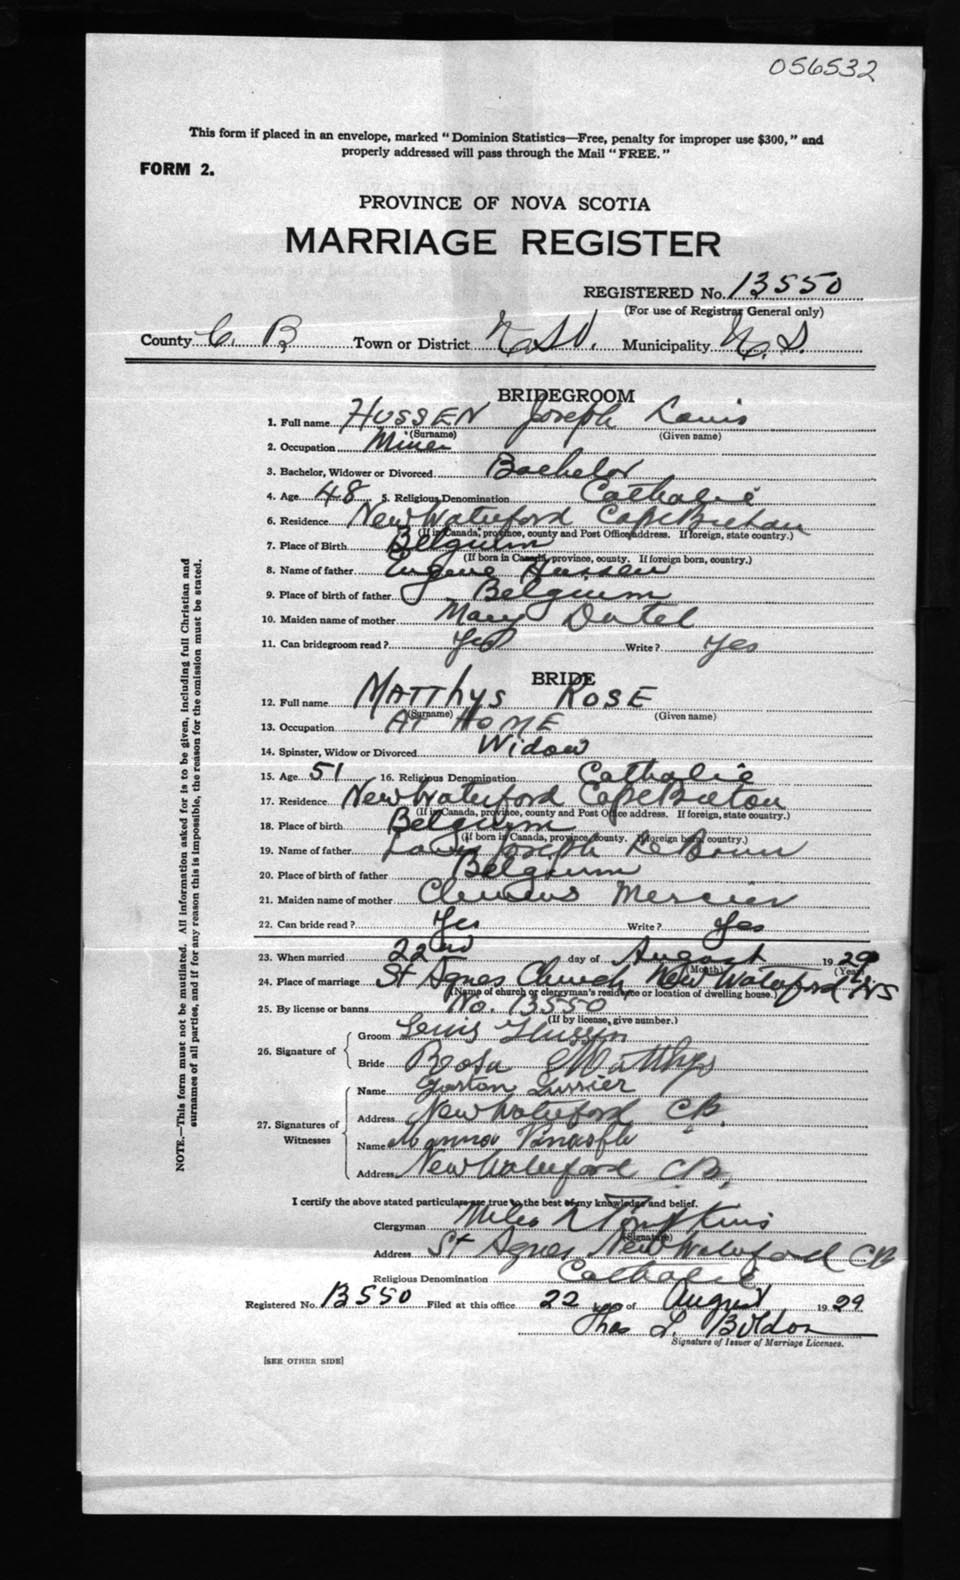 056532
This form if placed in an envelope, marked "Dominion Statistics—Free, penalty for improper use $300," and
properly addressed will pass through the Mail "FREE."
FORM 2.
PROVINCE OF NOVA SCOTIA
MARRIAGE REGISTER
REGISTERED No. 13550
(For use of Registrar General only)
County C. B Town or District Municipality N. S.
BRIDEGROOM
1. Full name HUSSEN Joseph Louis
(Surname) (Given name)
2. Occupation Miner
3. Bachelor, Widower or Divorced Bachelor
4. Age 48 5. Religious Denomination Catholic
6. Residence New Waterford Cape Breton
(If in Canada, province, county and Post Office address. If foreign, state country.)
7. Place of Birth Belgium
(If born in Canada, province, county. If foreign born, country.)
8. Name of father Eugene Hussen
9. Place of birth of father Belgium
10. Maiden name of mother Mary
11. Can bridegroom read? Yes Write? Yes
BRIDE
12. Full name MATTHYS ROSE
(Surname) (Given name)
13. Occupation AT HOME
14. Spinster, Widow or Divorced Widow
15. Age 51 16. Religious Denomination Catholic
17. Residence New Waterford Cape Breton
(If in Canada, province, county and Post Office address. If foreign, state country.)
18. Place of birth Belgium
(If born in Canada, province, county. If foreign born, country.)
19. Name of father Louis Joseph
20. Place of birth of father Belgium
21. Maiden name of mother Mercier
22. Can bride read? Yes Write? Yes
23. When married 22nd day of August 1929
(Month) (Year)
24. Place of marriage St Agnes Church New Waterford NS
(Name of church or clergyman's residence or location of dwelling house.)
25. By license or banns No. 13550
(If by license, give number.)
26. Signature of Groom Louis Hussen
Bride Rosa Matthys
27. Signatures of Witnesses Name Gaston
Address New Waterford C.B.
Name
Address New Waterford C.B.
I certify the above stated particulars are true to the best of my knowledge and belief.
Clergyman Miles Tompkins
(Signature)
Address St Agnes New Waterford CB
Religious Denomination Catholic
Registered No. 13550 Filed at this office 22 day of August 1929
Thos L.
Signature of Issuer of Marriage Licenses.
[SEE OTHER SIDE]
NOTE.—This form must not be mutilated. All information asked for is to be given, including full Christian and
surnames of all parties, and if for any reason this is impossible, the reason for the omission must be stated.